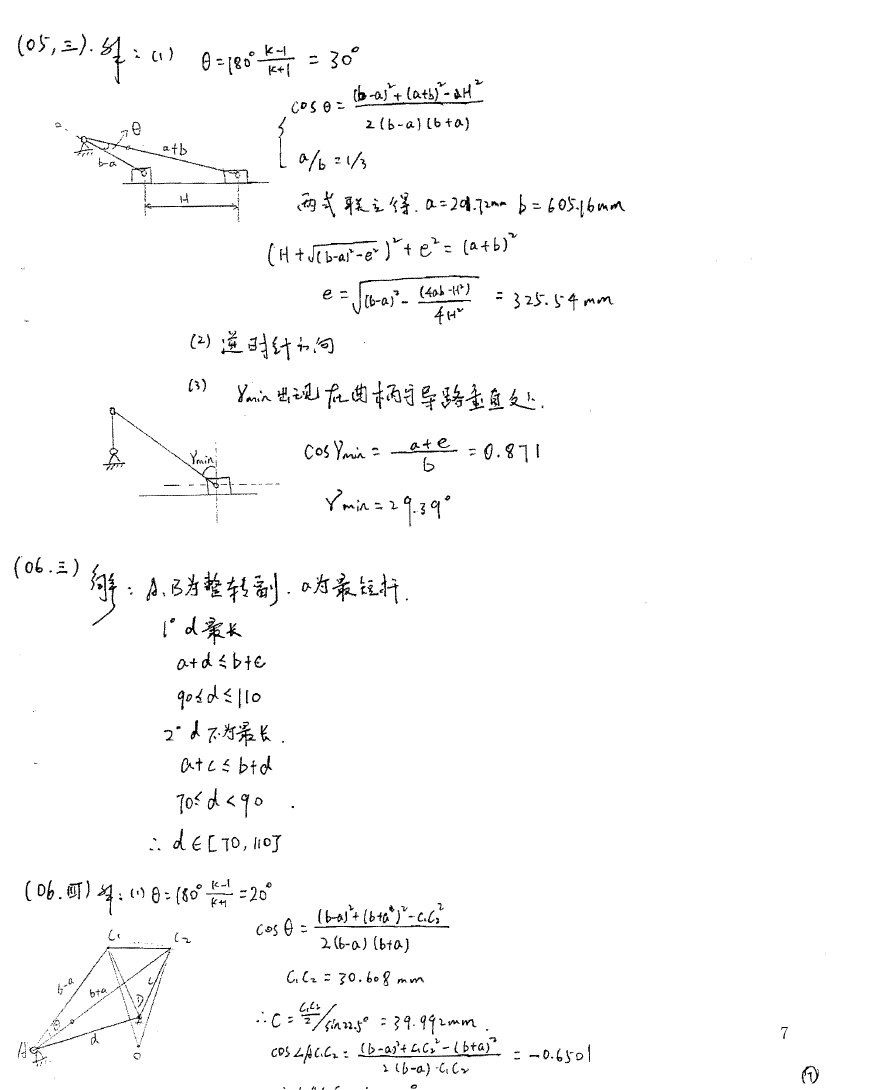 (05,三).解:(1) θ=180° (k-1)/(k+1) = 30°
cosθ = ((b-a)²+(a+b)²-H²)/(2(b-a)(b+a))
a/b=1/3
θ
a+b
b-a
H
两式联立得. a=201.72mm b=605.16mm
(H+√((b-a)²-e²))²+e²=(a+b)²
e=√((b-a)²-(4ab-H²)/4H²) = 325.54mm
(2) 逆时针方向
(3) γmin出现在曲柄与导路垂直处.
cosγmin = (a+e)/b = 0.871
γmin
γmin=29.39°
(06.三) 解: A、B为整转副. a为最短杆.
1° d最长
a+d≤b+c
90≤d≤110
2° d不为最长.
a+c≤b+d
70≤d<90.
∴ d∈[70,110]
(06.四) 解:(1) θ=180° (k-1)/(k+1) =20°
cosθ = ((b-a)²+(b+a)²-C₁C₂²)/(2(b-a)(b+a))
C₁ C₂
b-a
b+a
c
D
θ
A
d
O
C₁C₂=30.608mm
∴C = (C₁C₂/2)/sin22.5° =39.992mm.
cos∠AC₁C₂= ((b-a)²+C₁C₂²-(b+a)²)/(2(b-a)·C₁C₂) = -0.6501
7
(7)